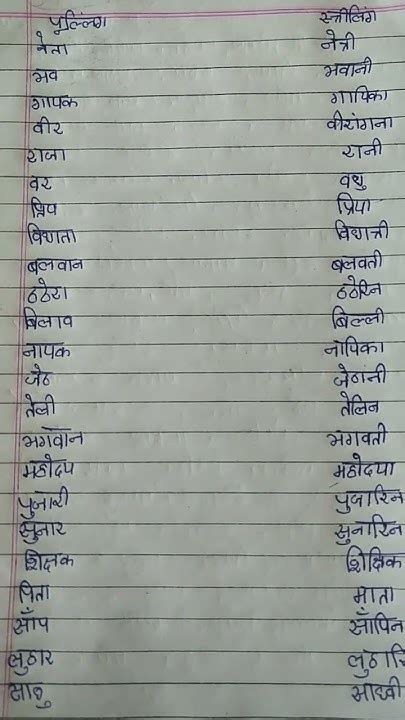 पुल्लिंग स्त्रीलिंग
नेता नेत्री
भव भवानी
गायक गायिका
वीर वीरांगना
राजा रानी
वर वधु
प्रिय प्रिया
विधाता विधात्री
बलवान बलवती
ठठेरा ठठेरिन
बिलाव बिल्ली
नायक नायिका
जेठ जेठानी
तेली तेलिन
भगवान भगवती
महोदय महोदया
पुजारी पुजारिन
सुनार सुनारिन
शिक्षक शिक्षिक
पिता माता
साँप साँपिन
लुहार लुहारि
साधु साध्वी